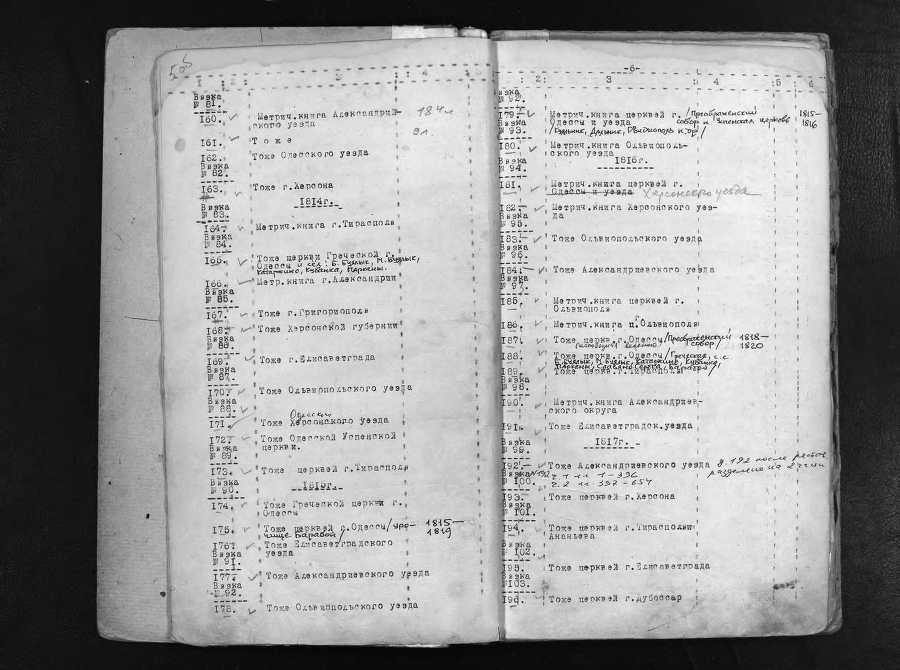 1 2 3 4
Вязка
№ 81.
160. Метрич.книга Александрий-
ского уезда
161. Тоже
9л.
162. Тоже Одесского уезда
Вязка
№ 82.
163. Тоже г.Херсона
Вязка
№ 83.
1814г.
164. Метрич.книга г.Тирасполя
Вязка
№ 84.
165. Тоже церкви Греческой г.
Одессы и сел: Б.Буялык, М.Буялык,
Катаржино, Кубанка, Паркны.
166. Метр.книга г.Александрии
Вязка
№ 85.
167. Тоже г.Григориополя
168. Тоже Херсонской губернии
Вязка
№ 86.
169. Тоже г.Елисаветграда
Вязка
№ 87.
170. Тоже Ольвиопольского уезда
Вязка
№ 88.
Одесского
171. Тоже Херсонского уезда
172. Тоже Одесской Успенской
церкви.
Вязка
№ 89.
173. Тоже церквей г.Тирасполя
Вязка
№ 90.
1815г.
174. Тоже Греческой церкви г.
Одессы
175. Тоже церквей г.Одессы /уро-
чище Баравой/ 1815-
1819
176. Тоже Елисаветградского
уезда
Вязка
№ 91.
177. Тоже Александриевского уезда
Вязка
№ 92.
178. Тоже Ольвиопольского уезда
-6-
2 3 4 5 6
Вязка
№ 92.
179. Метрич.книга церквей г. /Преображенский 1815-
Одессы и уезда собор и Успенская церковь 1816
Вязка
№ 93.
/Буялык, Дальник, Овидиополь и др/
180. Метрич.книга Ольвиополь-
ского уезда
Вязка
№ 94.
1816г.
181. Метрич.книга церквей г.
Одессы и уезда Херсонского уезда
182. Метрич.книга Херсонского уез-
да
Вязка
№ 95.
183. Тоже Ольвиопольского уезда
Вязка
№ 96.
184. Тоже Александриевского уезда
Вязка
№ 97.
185. Метрич.книга церквей г.
Ольвиополя
186. Метрич.книга ц.г Ольвиополя
187. Тоже церк.г.Одессы /Преображенский 1818-
собор/ 1820
188. Тоже церк.г.Одессы /Греческая, с.с.
Б.Буялык, М.Буялык, Катаржино, Кубанка,
189. Тоже церк.г.Тирасполя
Вязка
№ 98.
190. Метрич.книга Александриев-
ского округа
191. Тоже Елисаветградск.уезда
Вязка
№ 99.
1817г.
192. Тоже Александриевского уезда д.192 после расшив
разделено на 2 части
Вязка
№ 100.
ч 1 л 1 - 396
ч.2 л 397-654
193. Тоже церквей г.Херсона
Вязка
№ 101.
194. Тоже церквей г.Тирасполя и
Ананьева
Вязка
№ 102.
195. Тоже церквей г.Елисаветграда
Вязка
№103.
196. Тоже церквей г.Дубоссар